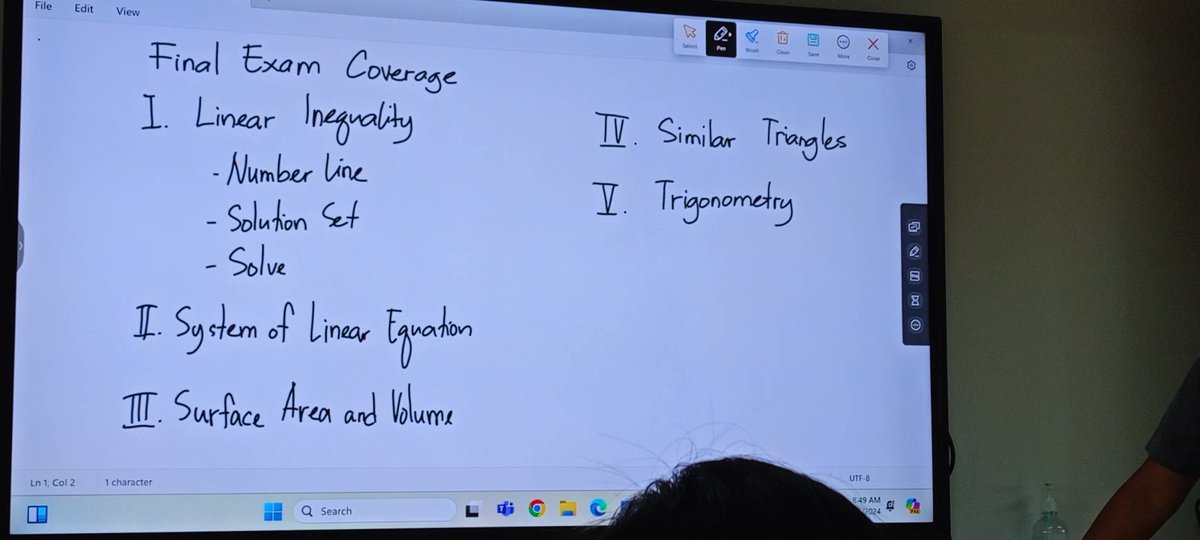 File Edit View
Select Pen Brush Clean Save More Close
Final Exam Coverage
I. Linear Inequality
- Number line
- Solution Set
- Solve
II. System of Linear Equation
III. Surface Area and Volume
IV. Similar Triangles
V. Trigonometry
Ln 1, Col 2 1 character UTF-8
Search
8:49 AM
2024